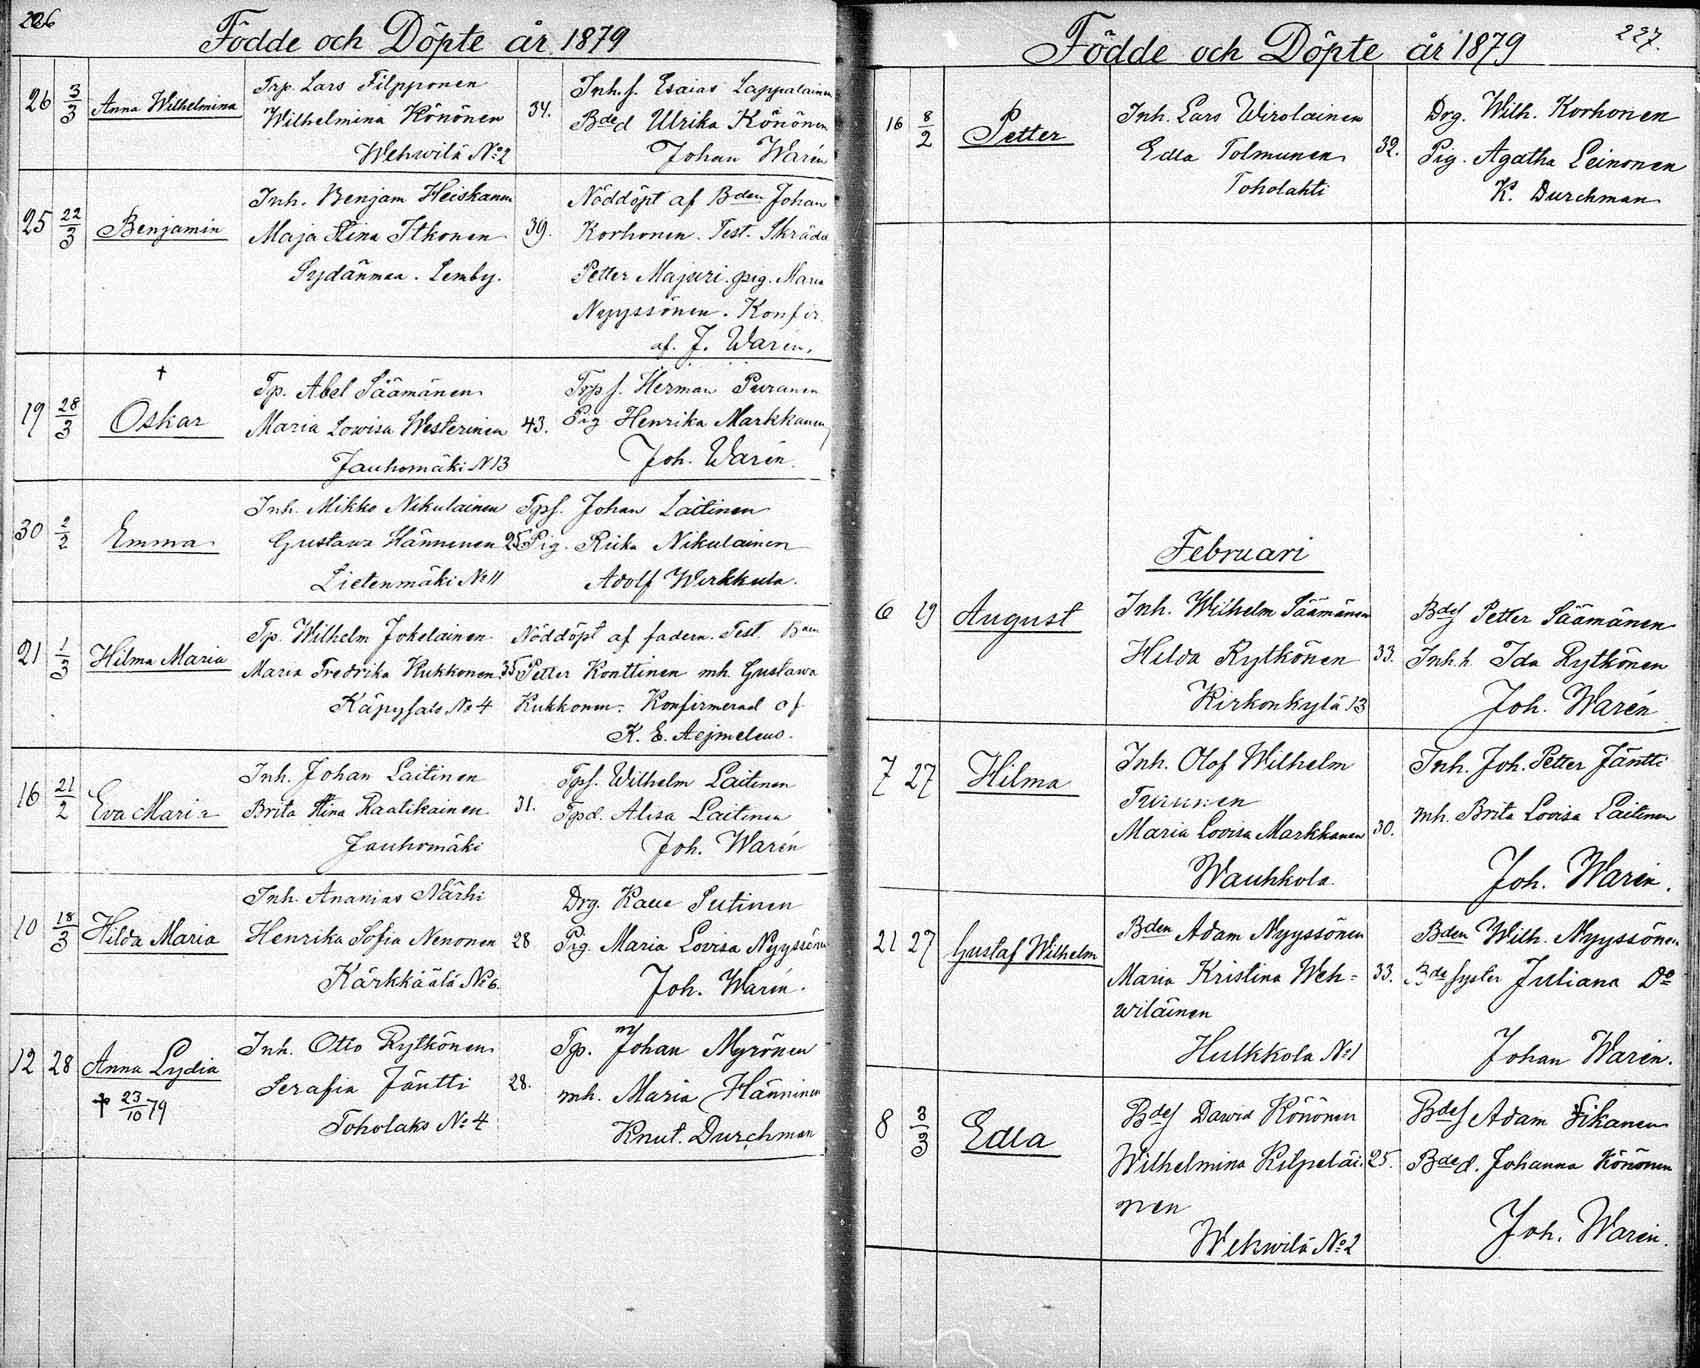 226
Födde och Döpte år 1879
26 3/3 Anna Wilhelmina
Trp. Lars Filpponen
Wilhelmina Könönen 34.
Wehwilä No 2
Inh. s. Esaias Lappalainen
Bde d Ulrika Könönen
Johan Warén
25 22/3 Benjamin
Inh. Benjam Heiskanen
Maja Stina Itkonen 39.
Sydänmaa. Lemby.
Nöddöpt af Bden Johan
Korhonen. Test. Skrädd
Petter Majuri. pig. Maria
Nyyssönen. Konfir.
af. J. Warén.
†
19 28/3 Oskar
Tp. Abel Säämänen
Maria Lowisa Westerinen 43.
Jauhomäki N 13
Trp s. Herman Puranen
Pig Henrika Markkanen
Joh. Warén.
30 2/2 Emma
Inh. Mikko Nikulainen
Gustawa Hänninen 25
Lietenmäki No 11
Tps. Johan Laitinen
Pig. Riika Nikulainen
Adolf Werkkula.
21 1/3 Hilma Maria
Tp. Wilhelm Jokelainen
Maria Fredrika Kukkonen 35
Käpysalo No 4
Nöddöpt af fadern. Test. Bden
Petter Konttinen mh. Gustawa
Kukkonen. Konfirmerad af
K. E. Aejmeleus.
16 21/2 Eva Maria
Inh. Johan Laitinen
Brita Stina Raatikainen 31.
Jauhomäki
Tps. Wilhelm Laitinen
Tpd. Alisa Laitinen
Joh. Warén
10 18/3 Hilda Maria
Inh. Ananias Närhi
Henrika Sofia Nenonen 28
Kärkkäälä No 6.
Drg. Kalle Sutinen
Pig. Maria Lovisa Nyyssönen
Joh. Warén.
12 28 Anna Lydia
† 23/10 79
Inh. Otto Rytkönen
Serafia Jäntti 28.
Toholaks No 4
Tp. Johan Myrönen
mh. Maria Hänninen
Knut. Durchman
227.
Födde och Döpte år 1879
16 8/2 Petter
Inh. Lars Wirolainen
Edla Tolmunen 32.
Toholahti
Drg. Wilh. Korhonen
Pig. Agatha Leinonen
K. Durchman
Februari
6 19 August
Inh. Wilhelm Säämänen
Hilda Rytkönen 33.
Kirkonkylä 13
Bdes Petter Säämänen
Inh. h. Ida Rytkönen
Joh. Warén
7 27 Hilma
Inh. Olof Wilhelm
Turunen
Maria Lovisa Markkanen 30.
Wauhkola
Inh. Joh. Petter Jäntti
mh. Brita Lovisa Laitinen
Joh. Warén.
21 27 Gustaf Wilhelm
Bden Adam Nyyssönen
Maria Kristina Weh= 33.
wiläinen
Hulkkola No 1
Bden Wilh. Nyyssönen
Bde syster Juliana Do
Johan Warén.
8 3/3 Edla
Bdes Dawid Könönen
Wilhelmina Kilpeläi 25.
nen
Wehwilä No 2
Bdes Adam Fikanen
Bde d. Johanna Könönen
Joh. Warén.